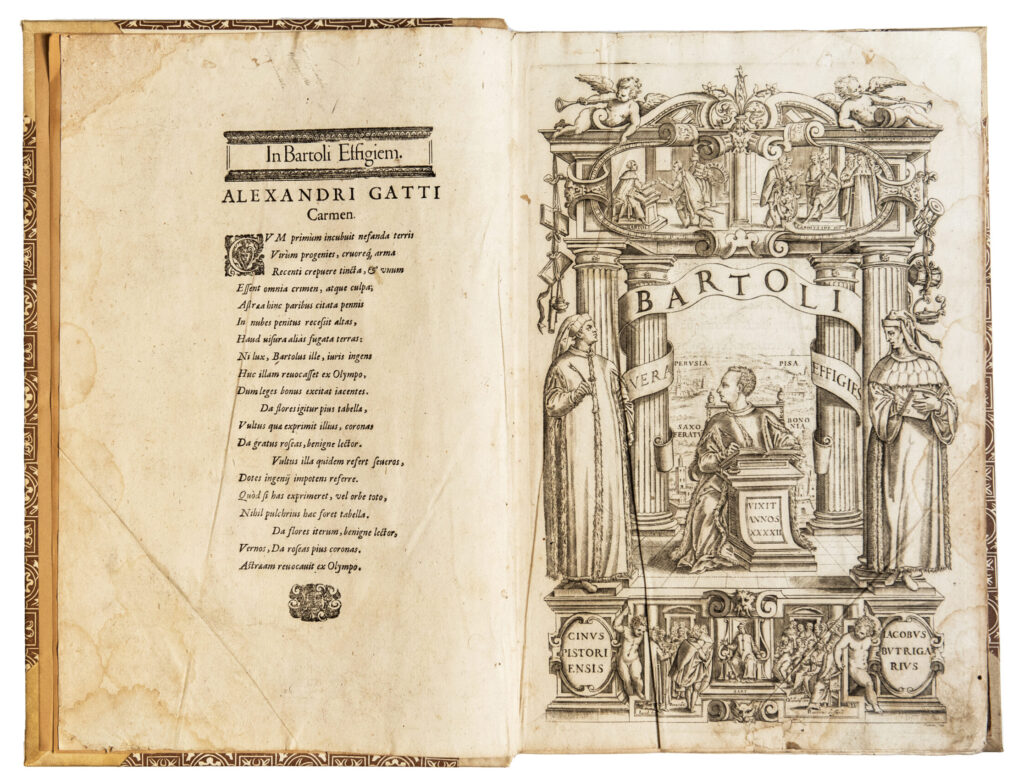 In Bartoli Effigiem.
ALEXANDRI GATTI
Carmen.
CVM primùm incubuit nefanda terris
Virûm progenies, cruoreq, arma
Recenti crepuere tincta, & vnum
Essent omnia crimen, atque culpa;
Astræa hinc paribus citata pennis
In nubes penitus recessit altas,
Haud uisura aliàs fugata terras:
Ni lux, Bartolus ille, iuris ingens
Huc illam reuocasset ex Olympo,
Dum leges bonus excitat iacentes.
Da flores igitur pius tabella,
Vultus qua exprimit illius, coronas
Da gratus roseas, benigne lector.
Vultus illa quidem refert seueros,
Dotes ingenij impotens referre.
Quòd si has exprimeret, vel orbe toto,
Nihil pulchrius hac foret tabella.
Da flores iterum, benigne lector,
Vernos, Da roseas pius coronas.
Astræam reuocauit ex Olympo.
BARTOLI
VERA
EFFIGIES
PERVSIA
PISA
SAXO
FERATV
BONO
NIA
VIXIT
ANNOS
XXXXII
CINVS
PISTORI
ENSIS
IACOBVS
BVTRIGA
RIVS